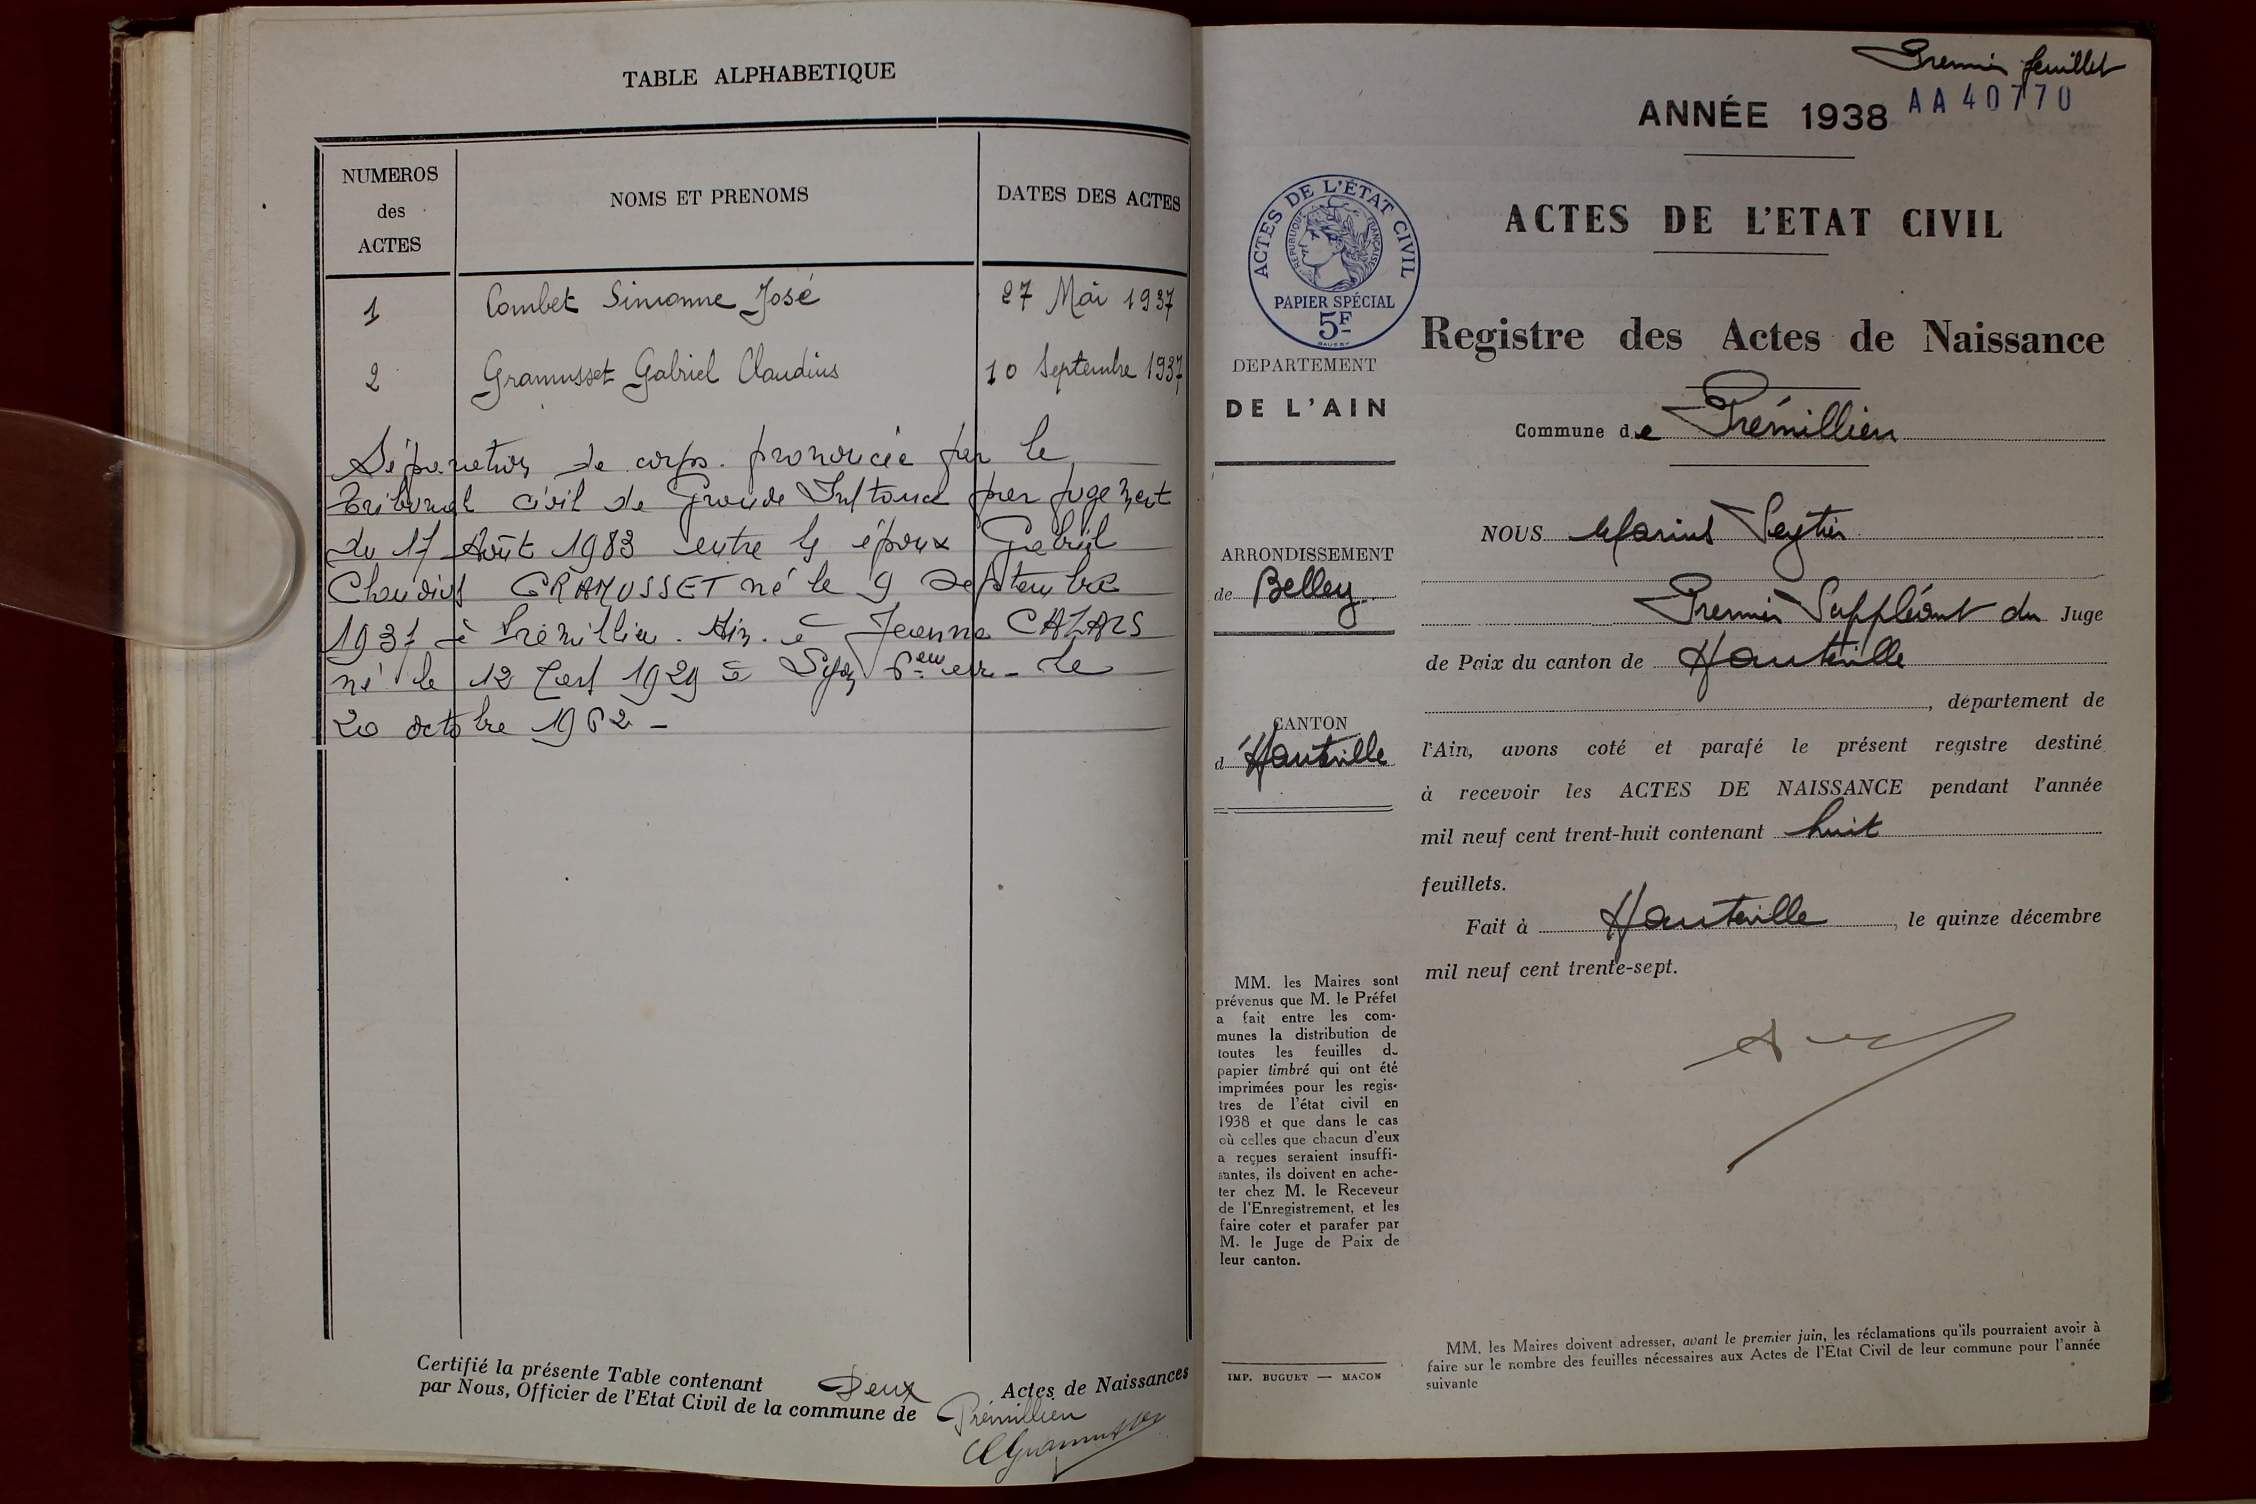 TABLE ALPHABETIQUE
NUMEROS
des
ACTES
NOMS ET PRENOMS
DATES DES ACTES
1 Combet Simonne José 27 Mai 1937
2 Gramusset Gabriel Claudius 10 Septembre 1937
Séparation de corps. prononcée par le
tribunal civil de Grande Instance par jugement
du 17 Août 1983 entre les époux Gabriel
Claudius GRAMUSSET né le 9 Septembre
1937 à Prémillieu. Ain. à Jeanne CAZALS
né le 12 1929 à Lyon 6ème le
20 octobre 1962 -
Certifié la présente Table contenant Deux Actes de Naissances
par Nous, Officier de l'Etat Civil de la commune de Prémillieu
Gramusset
Premier feuillet
AA 40770
ANNÉE 1938
ACTES DE L'ETAT CIVIL
ACTES DE L'ÉTAT CIVIL
RÉPUBLIQUE FRANÇAISE
PAPIER SPÉCIAL
5F
Registre des Actes de Naissance
DEPARTEMENT
DE L'AIN
Commune de Prémillieu
ARRONDISSEMENT
de Belley
CANTON
d'Hauteville
NOUS Marius Seytier
Premier Suppléant du Juge
de Paix du canton de Hauteville
, département de
l'Ain, avons coté et parafé le présent registre destiné
à recevoir les ACTES DE NAISSANCE pendant l'année
mil neuf cent trent-huit contenant huit
feuillets.
Fait à Hauteville, le quinze décembre
mil neuf cent trente-sept.
MM. les Maires sont
prévenus que M. le Préfet
a fait entre les com-
munes la distribution de
toutes les feuilles du
papier timbré qui ont été
imprimées pour les regis-
tres de l'état civil en
1938 et que dans le cas
où celles que chacun d'eux
a reçues seraient insuffi-
santes, ils doivent en ache-
ter chez M. le Receveur
de l'Enregistrement, et les
faire coter et parafer par
M. le Juge de Paix de
leur canton.
IMP. BUGUET — MACON
MM. les Maires doivent adresser, avant le premier juin, les réclamations qu'ils pourraient avoir à
faire sur le nombre des feuilles nécessaires aux Actes de l'Etat Civil de leur commune pour l'année
suivante